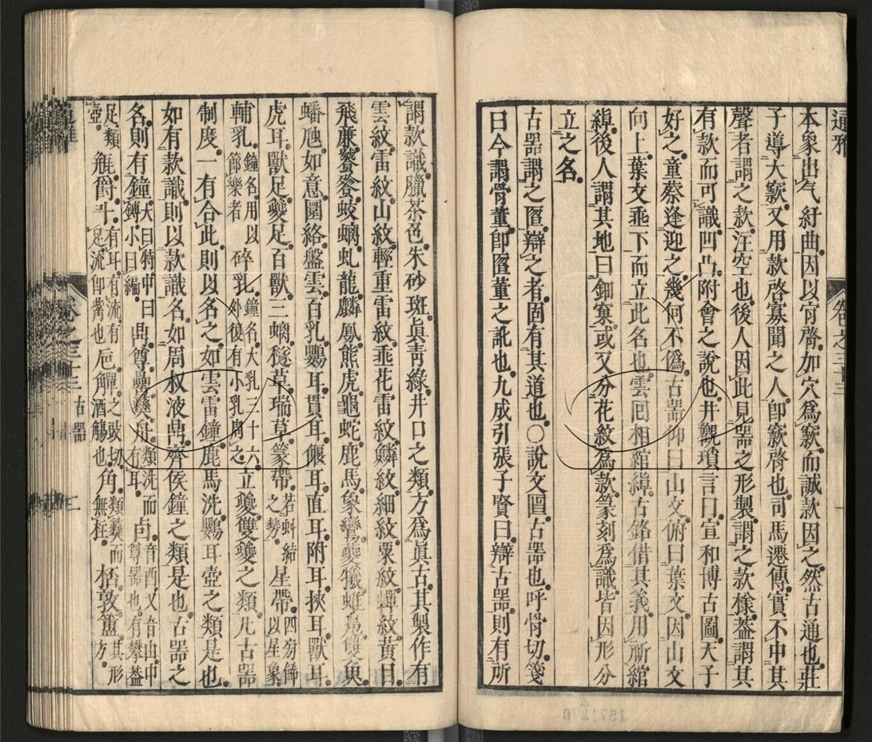 通雅
卷之三十三
本象出气紆曲因以肎綮加穴爲窾而誠款因之然古通也莊
子導大窾又用款啓寡聞之人卽窾啓也司馬遷傳實不中其
聲者謂之款注空也後人因此見器之形製謂之款樣葢謂其
有款而可識凹凸附會之說也井觀瑣言曰宣和博古圖天子
好之童蔡逢迎之幾何不僞古器仰曰山文俯曰葉文因山文
向上葉文垂下而立此名也雲回相綰緯古鉻借其義用所綰
緯後人謂其地曰鈿窠或又分花紋爲款篆刻爲識皆因形分
立之名
古器謂之匫辯之者固有其道也○說文匫古器也呼骨切箋
曰今謂骨董卽匫董之訛也九成引張子賢曰辯古器則有所
謂款識臘茶色朱砂斑眞靑綠井口之類方爲眞古其製作有
雲紋雷紋山紋輕重雷紋垂花雷紋鱗紋細紋粟紋蟬紋黃目
飛廉饕餮蛟螭虬龍麟鳳熊虎龜蛇鹿馬象鸞夔犧蜼鳧雙魚
蟠虺如意圜絡盤雲百乳鸚耳貫耳偃耳直耳附耳挾耳獸耳
虎耳獸足夔足百獸三螭穟草瑞草篆帶若蚪結之勢星帶四旁飾以星象
輔乳鐘名用以節樂者碎乳鐘名大乳三十六外復有小乳周之立夔雙夔之類凡古器
制度一有合此則以名之如雲雷鐘鹿馬洗鸚耳壺之類是也
如有款識則以款識名如周叔液鼎齊侯鐘之類是也古器之
名則有鐘大曰特中曰鎛小曰編鼎尊罍彝舟類洗而有耳卣音酉又音由中尊器也有攀葢
足類壺觥爵斗有耳有流有足流卽觜也卮觶之豉切角酒觴也角類彝而無柱杯敦簠其形方
通雅
卷之三十三
古器
二